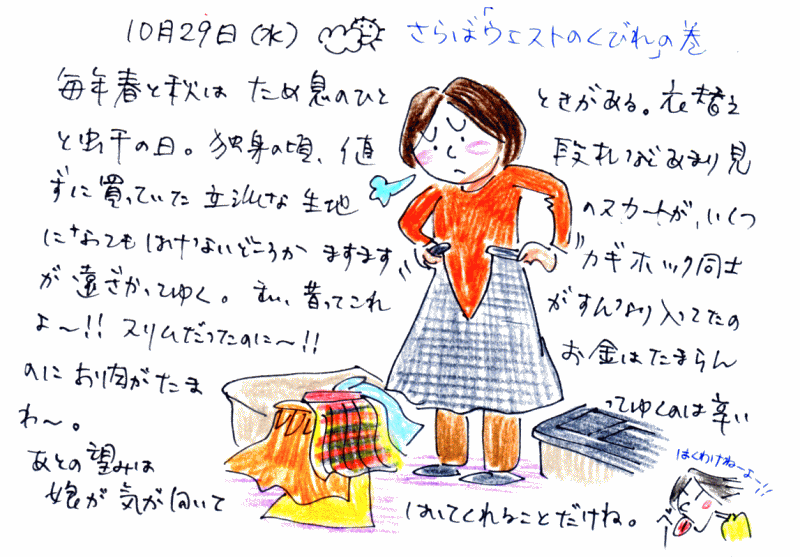 10月29日(水) さらば「ウェストのくびれ」の巻
毎年春と秋は ため息のひと ときがある。衣替え
と虫干の日。独身の頃、値 段札などあまり見
ずに買っていた立派な生地 のスカートが、いくつ
になってもはけないどころか ますます カギホック同士
が遠ざかってゆく。 昔ってこれ がすんなり入ってたの
よ〜!! スリムだったのに〜!! お金はたまらん
のにお肉がたま ってゆくのは辛い
わ〜。
あとの望みは
娘が気が向いて はいてくれることだけね。
はくわけねーよー!!
べー